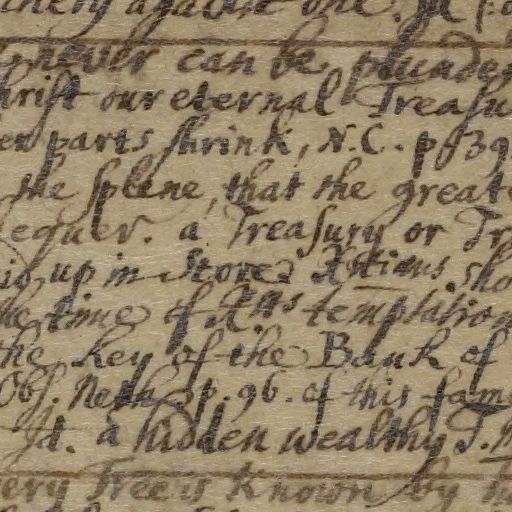 against one.
never can be plunder
hrist our eternal Treasu
er parts shrink, N.C. p. 539
the splene, that the greate
equer. a Treasury or Tr
up in Store. Xtians sho
the time of Xts temptation
the key of the Bank of
Obs. Neth. p. 96. of this fam
Id. a hidden wealthy T.
ery Tree is Known by h